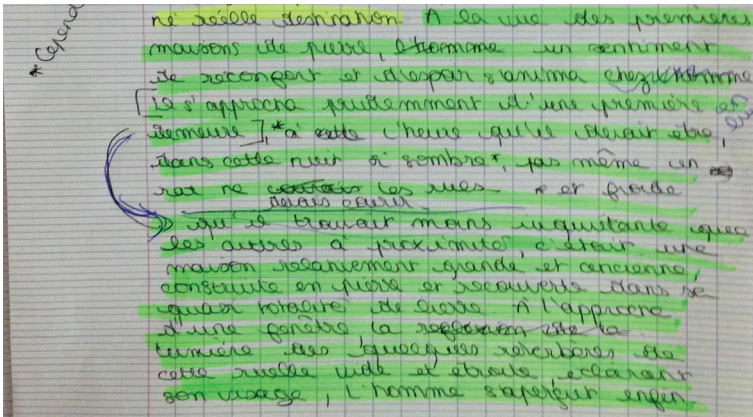 né réelle destination. A la vue des premières
*Cepend
maisons de pierre, l'homme un sentiment
de reconfort et d'espoir s'anima chez l'homme
[Il s'approcha prudemment d'une première en lui
demeure], *à cette l'heure qu'il devait être,
dans cette nuit si sombre*, pas même un
rat ne les rues * et froide
devais courir
qu'il trouvait moins inquiétante que
les autres à proximité, c'était une
maison relativement grande et ancienne,
construite en pierre et recouverte dans sa
quasi totalité de lierre. A l'approche
d'une fenêtre la reflexion de la
lumière des quelques réverbères de
cette ruelle vide et étroite, éclairant
son visage, l'homme s'aperçut enfin